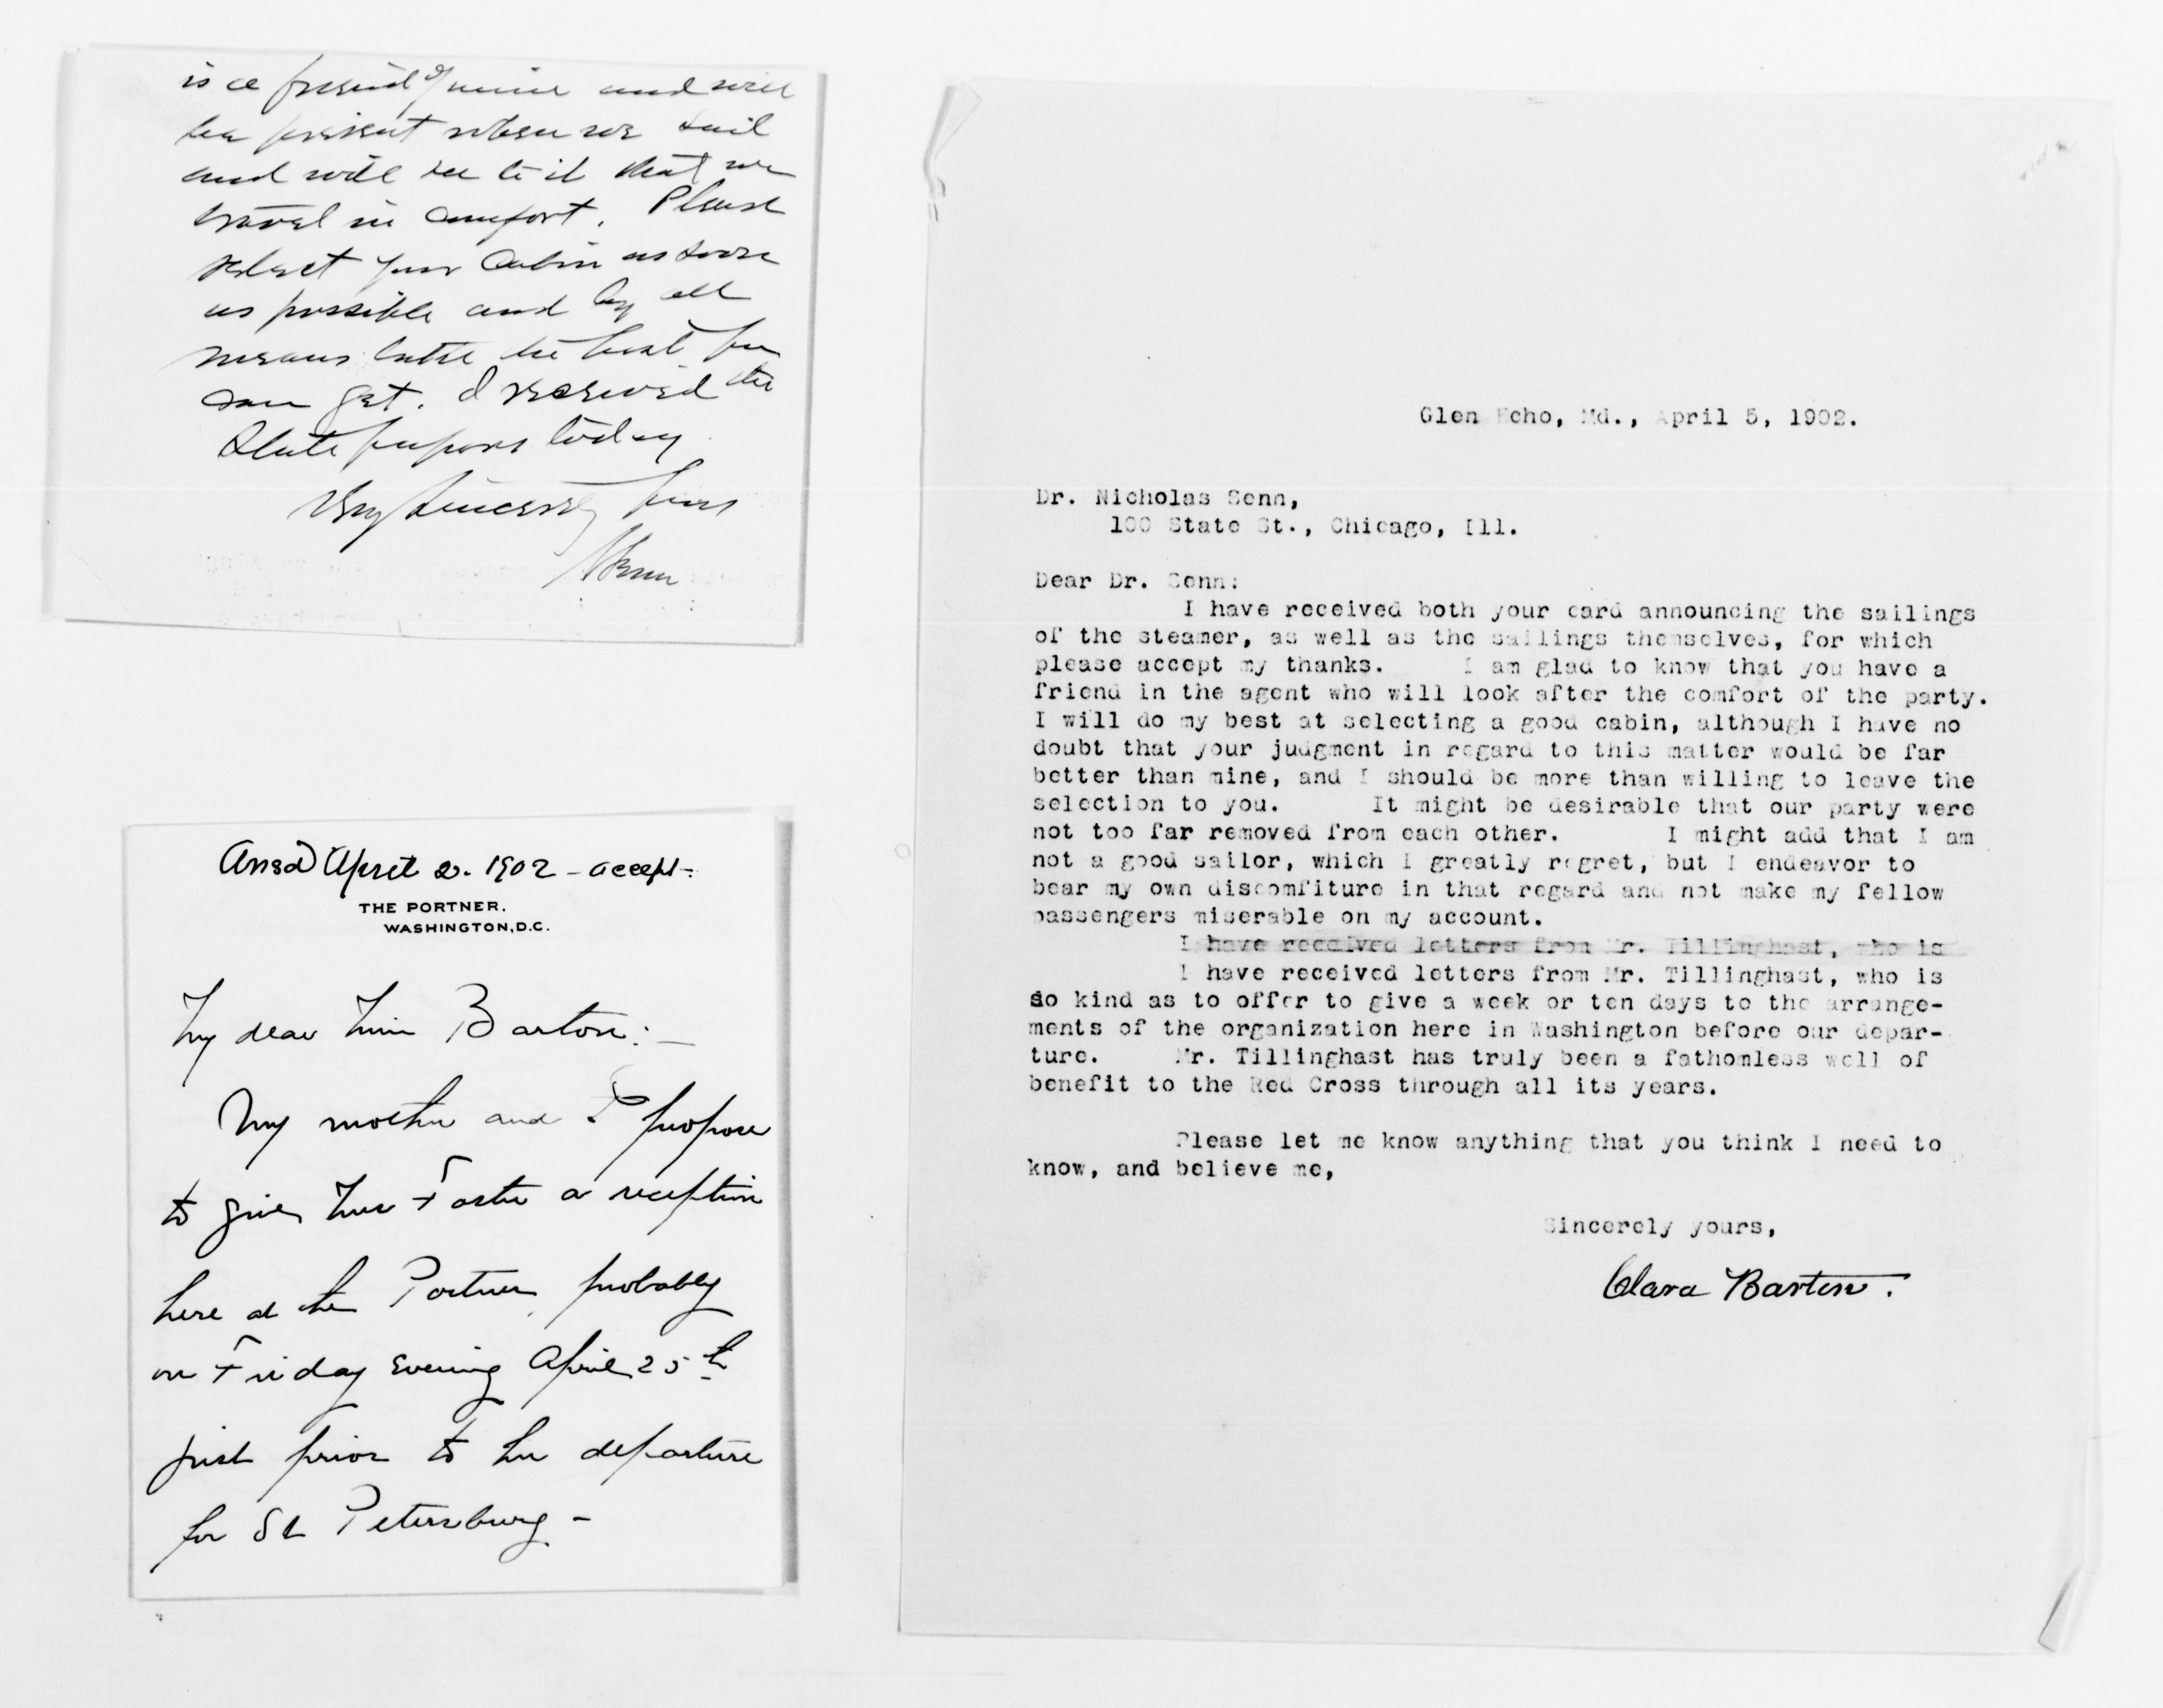 is a friend of mine and will
be present when we sail
and will see to it that we
travel in comfort. Please
select your Cabin as soon
as possible and by all
means take the best you
can get. I received the
State papers today
Very sincerely yours
N Senn
Ansd April 2. 1902 - accept -
THE PORTNER.
WASHINGTON, D.C.
My dear Miss Barton: -
My mother and I propose
to give Mrs Foster a reception
here at the Portner, probably
on Friday evening April 25th
just prior to her departure
for St Petersburg -
Glen Echo, Md., April 5, 1902.
Dr. Nicholas Senn,
100 State St., Chicago, Ill.
Dear Dr. Senn:
I have received both your card announcing the sailings
of the steamer, as well as the sailings themselves, for which
please accept my thanks. I am glad to know that you have a
friend in the agent who will look after the comfort of the party.
I will do my best at selecting a good cabin, although I have no
doubt that your judgment in regard to this matter would be far
better than mine, and I should be more than willing to leave the
selection to you. It might be desirable that our party were
not too far removed from each other. I might add that I am
not a good sailor, which I greatly regret, but I endeavor to
bear my own discomfiture in that regard and not make my fellow
passengers miserable on my account.
I have received letters from Mr. Tillinghast, who is
I have received letters from Mr. Tillinghast, who is
so kind as to offer to give a week or ten days to the arrange-
ments of the organization here in Washington before our depar-
ture. Mr. Tillinghast has truly been a fathomless well of
benefit to the Red Cross through all its years.
Please let me know anything that you think I need to
know, and believe me,
Sincerely yours,
Clara Barton.